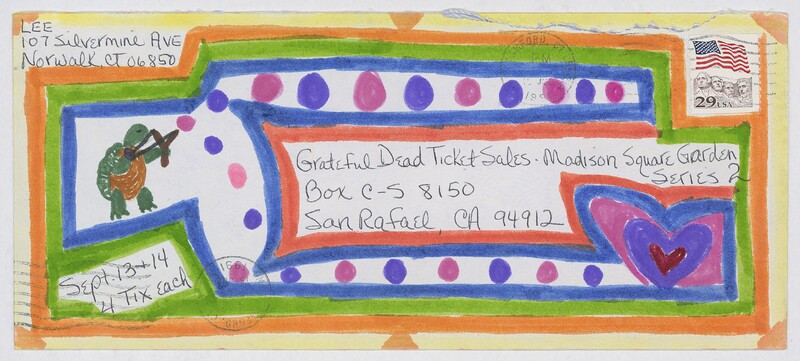 LEE
107 Silvermine AVE
Norwalk, CT 06850
29 USA
Grateful Dead Ticket Sales. Madison Square Garden
Series 2
Box C-S 8150
San Rafael, CA 94912
Sept 13 + 14
4 Tix each